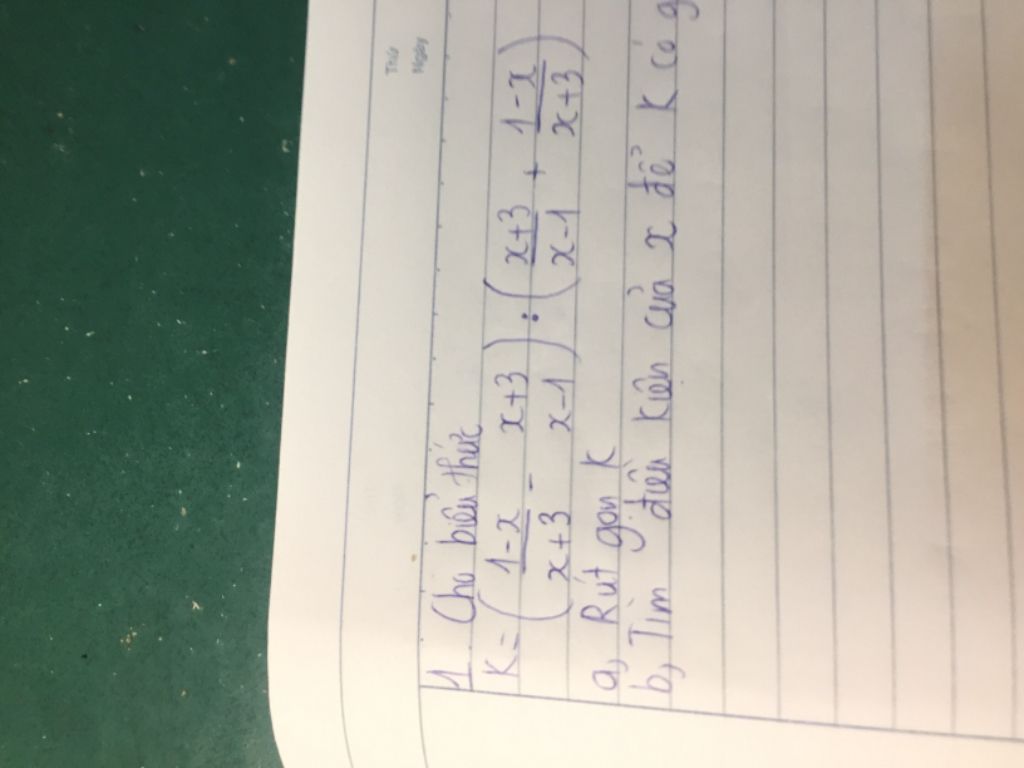 Thứ
Ngày
1. Cho biểu thức
K = ( \frac{1-x}{x+3} - \frac{x+3}{x-1} ) : ( \frac{x+3}{x-1} + \frac{1-x}{x+3} )
a, Rút gọn K
b, Tìm điều kiên của x để K có g